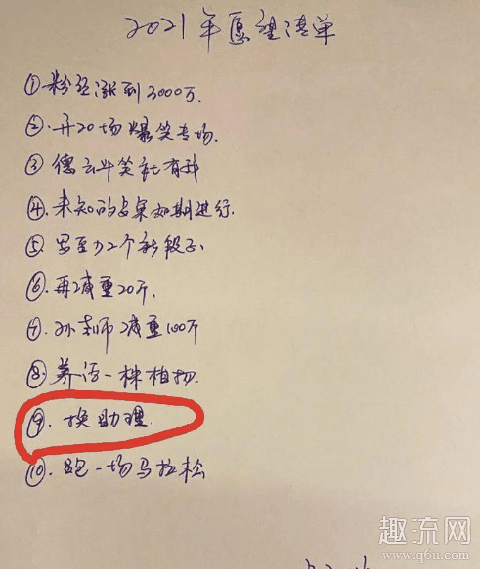 2021年愿望清单
①粉丝涨到3000万.
②.开20场爆笑专场.
③德云斗笑社有我
④.未知的专桌如期进行.
⑤写至少2个新段子.
⑥.再减重20斤.
⑦.孙老师减重100斤
⑧.养活一株植物.
⑨.换助理.
⑩.跑一场马拉松
趣流网
www.q6u.com